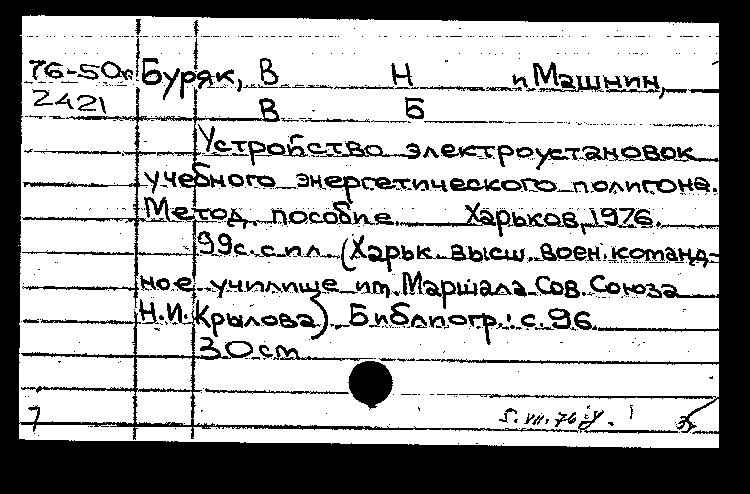 76-50п Буряк, В Н и Машнин,
2421 В Б
Устройство электроустановок
учебного энергетического полигона.
Метод. пособие. Харьков, 1976.
99с. с ил. (Харьк. высш. воен. команд-
ное училище им. Маршала Сов. Союза
Н.И. Крылова). Библиогр.: с. 96
30см
7 5.VII.76